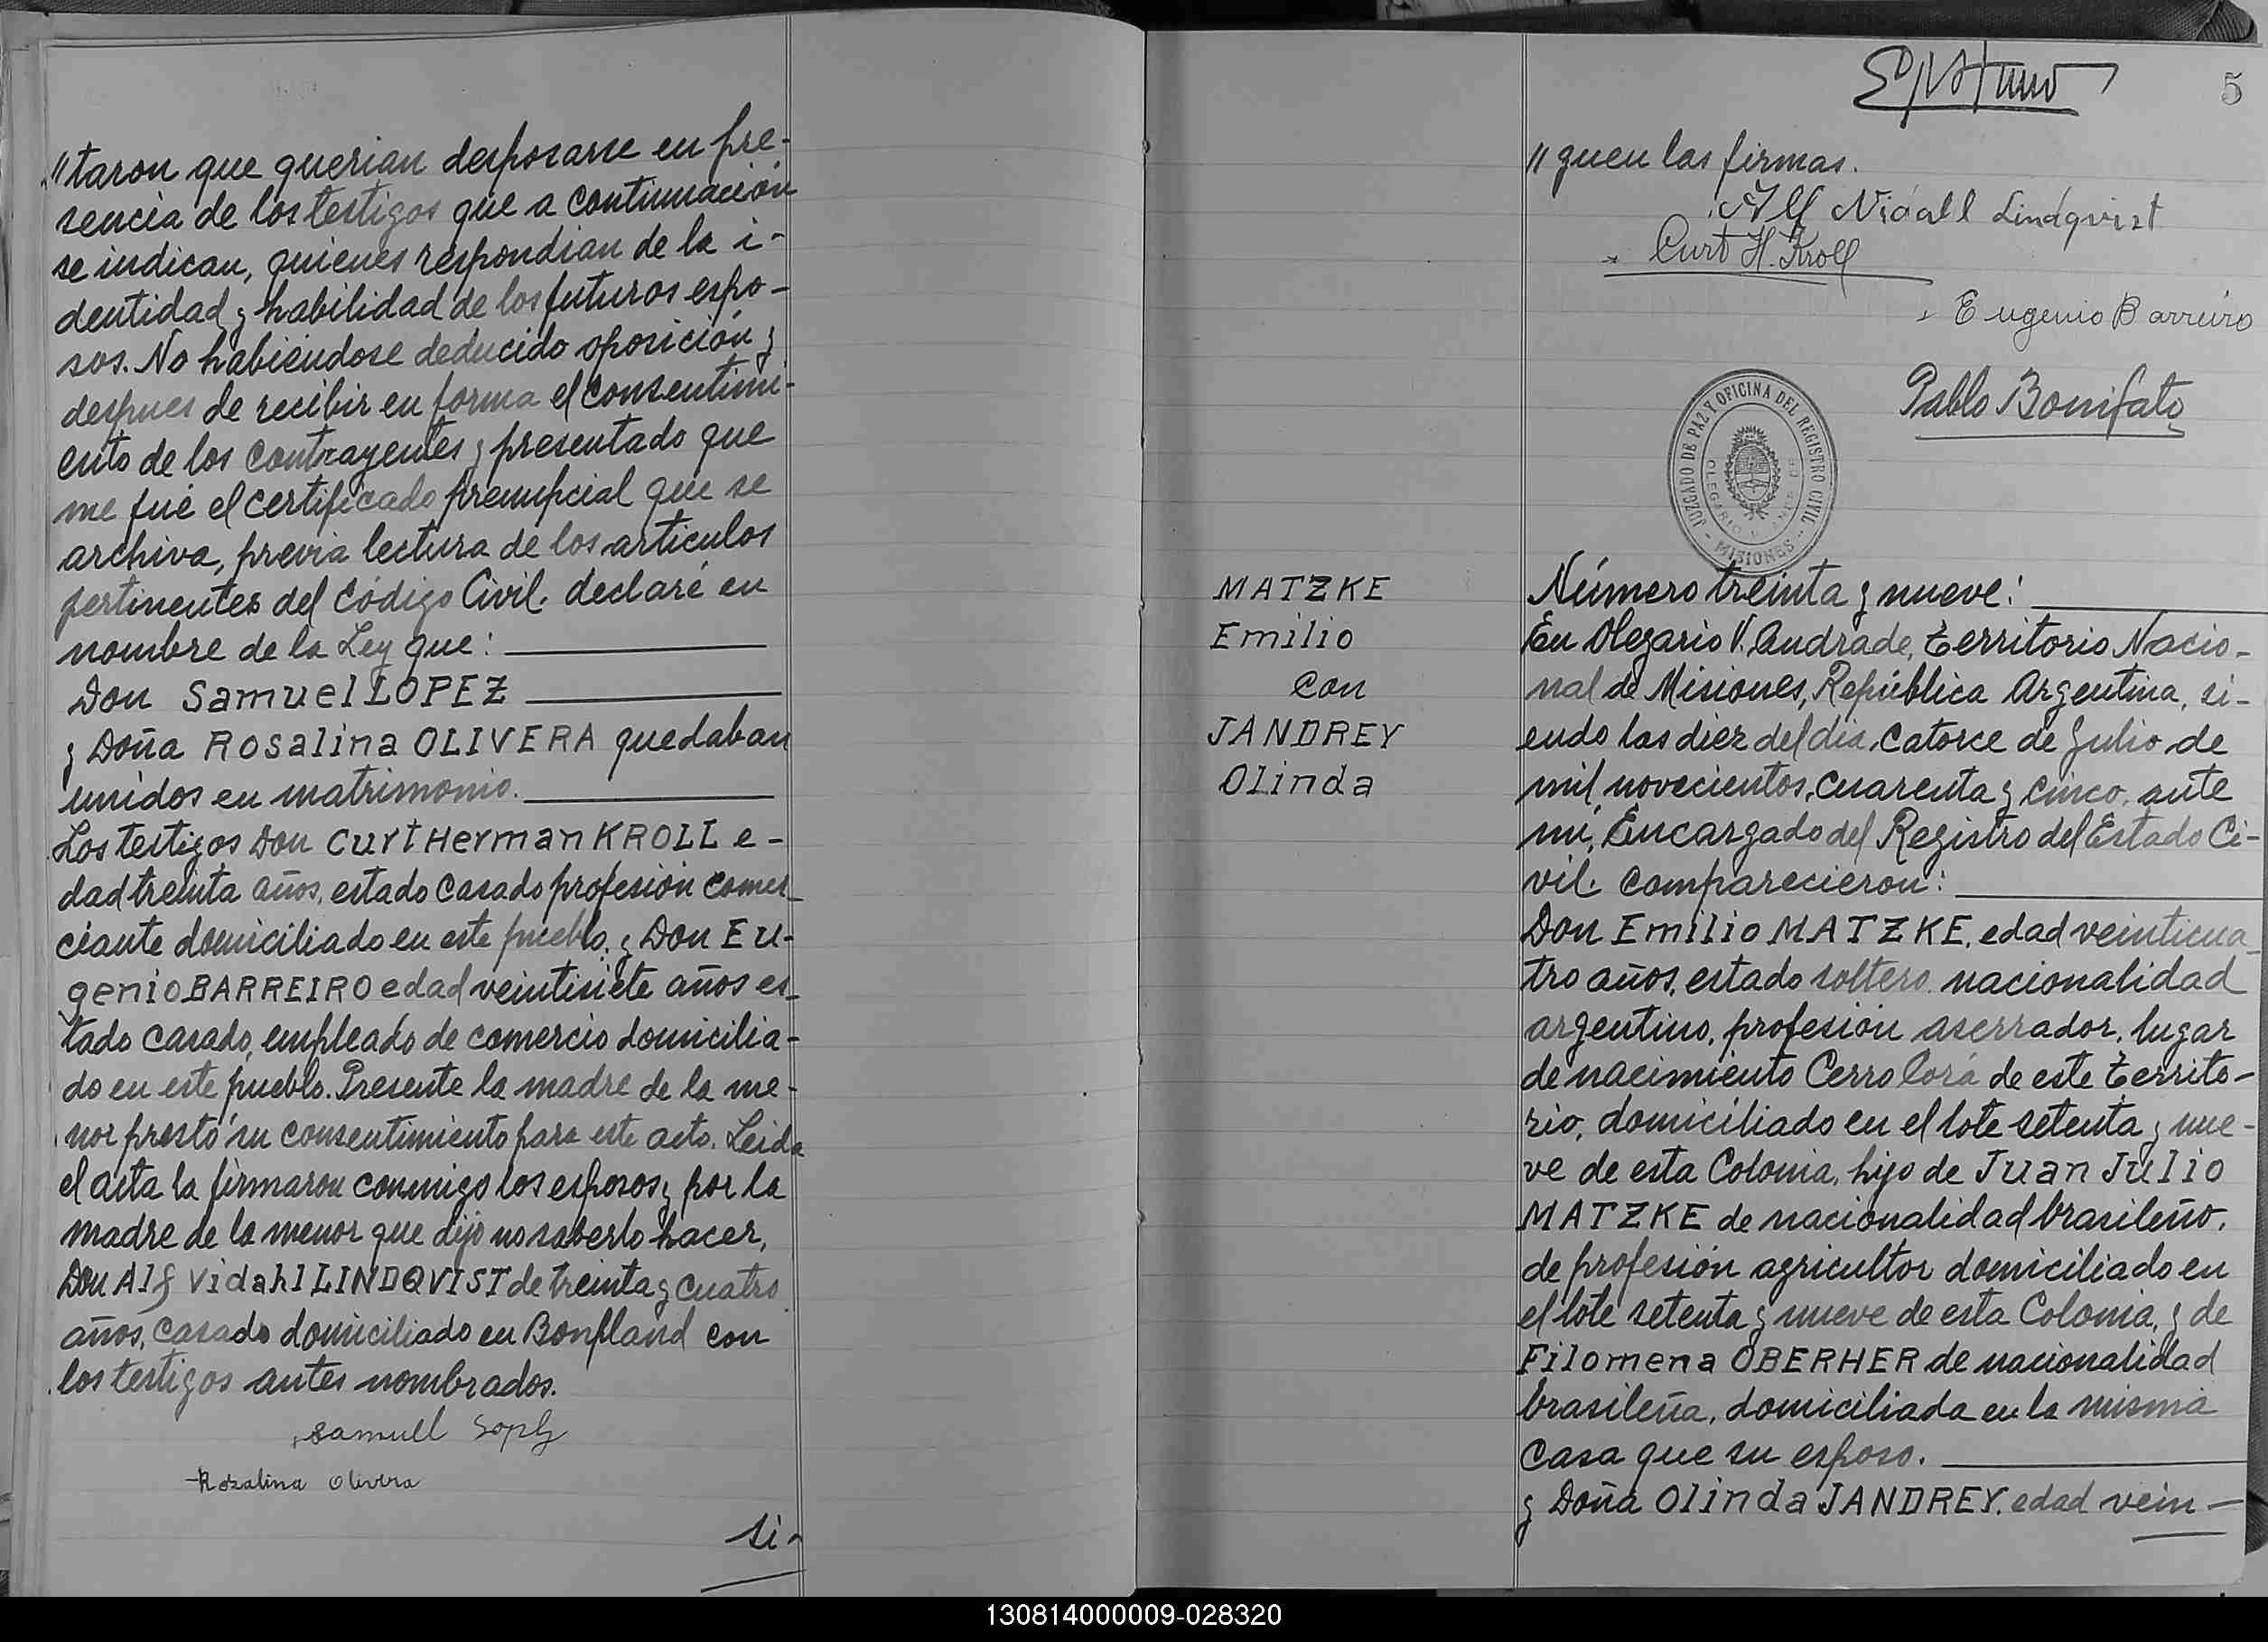 "taron que querian desposarse en pre-
sencia de los testigos que a continuación
se indican, quienes respondian de la i-
dentidad y habilidad de los futuros espo-
sos. No habiéndose deducido oposición y
despues de recibir en forma el consentimi-
ento de los contrayentes y presentado que
me fué el certificado prenupcial que se
archiva, previa lectura de los articulos
pertinentes del Código Civil. declaré en
nombre de la Ley que:
Don Samuel LOPEZ
y Doña Rosalina OLIVERA quedaban
unidos en matrimonio.
Los testigos Don Curt Herman KROLL e-
dad treinta años, estado casado profesión comer-
ciante domiciliado en este pueblo, y Don Eu-
genio BARREIRO edad veintisiete años es-
tado casado, empleado de comercio domicilia-
do en este pueblo. Presente la madre de la me-
nor prestó su consentimiento para este acto. Leida
el acta la firmaron conmigo los esposos y por la
madre de la menor que dijo no saberlo hacer,
Don Alf Vidahl LINDQVIST de treinta y cuatro
años, casado domiciliado en Bonpland con
los testigos antes nombrados.
Samuell
Rozalina Olivera
si-
5
"guen las firmas.
Alf Vidall Lindqvist
Curt H. Kroll
Eugenio Barreiro
Pablo Bonifato
JUZGADO DE PAZ Y OFICINA DEL REGISTRO CIVIL
OLEGARIO
MISIONES
MATZKE
Emilio
con
JANDREY
Olinda
Número treinta y nueve:
En Olegario V. Andrade, Territorio Nacio-
nal de Misiones, República Argentina, si-
endo las diez del dia, catorce de Julio de
mil, novecientos, cuarenta y cinco, ante
mi, Encargado del Registro del Estado Ci-
vil. comparecieron:
Don Emilio MATZKE, edad veinticua-
tro años, estado soltero nacionalidad
argentino, profesión aserrador, lugar
de nacimiento Cerro Corá de este Territo-
rio, domiciliado en el lote setenta y nue-
ve de esta Colonia, hijo de Juan Julio
MATZKE de nacionalidad brasileño,
de profesión agricultor domiciliado en
el lote setenta y nueve de esta Colonia, y de
Filomena OBERHER de nacionalidad
brasileña, domiciliada en la misma
casa que su esposo.
y Doña Olinda JANDREY, edad vein-
130814000009-028320